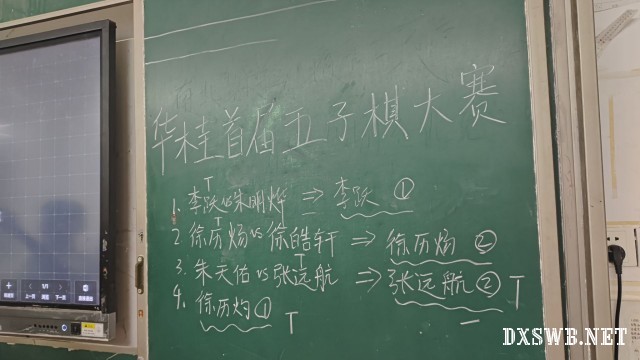 华桂首届五子棋大赛
T
1. 李跃vs朱明烨 ⇒ 李跃 ①
T
2 徐历炀vs徐皓轩 ⇒ 徐历炀 ②
T
3. 朱天佑vs张远航 ⇒ 张远航 ② T
4. 徐历灼 ① T
1/1
DXSWB.NET